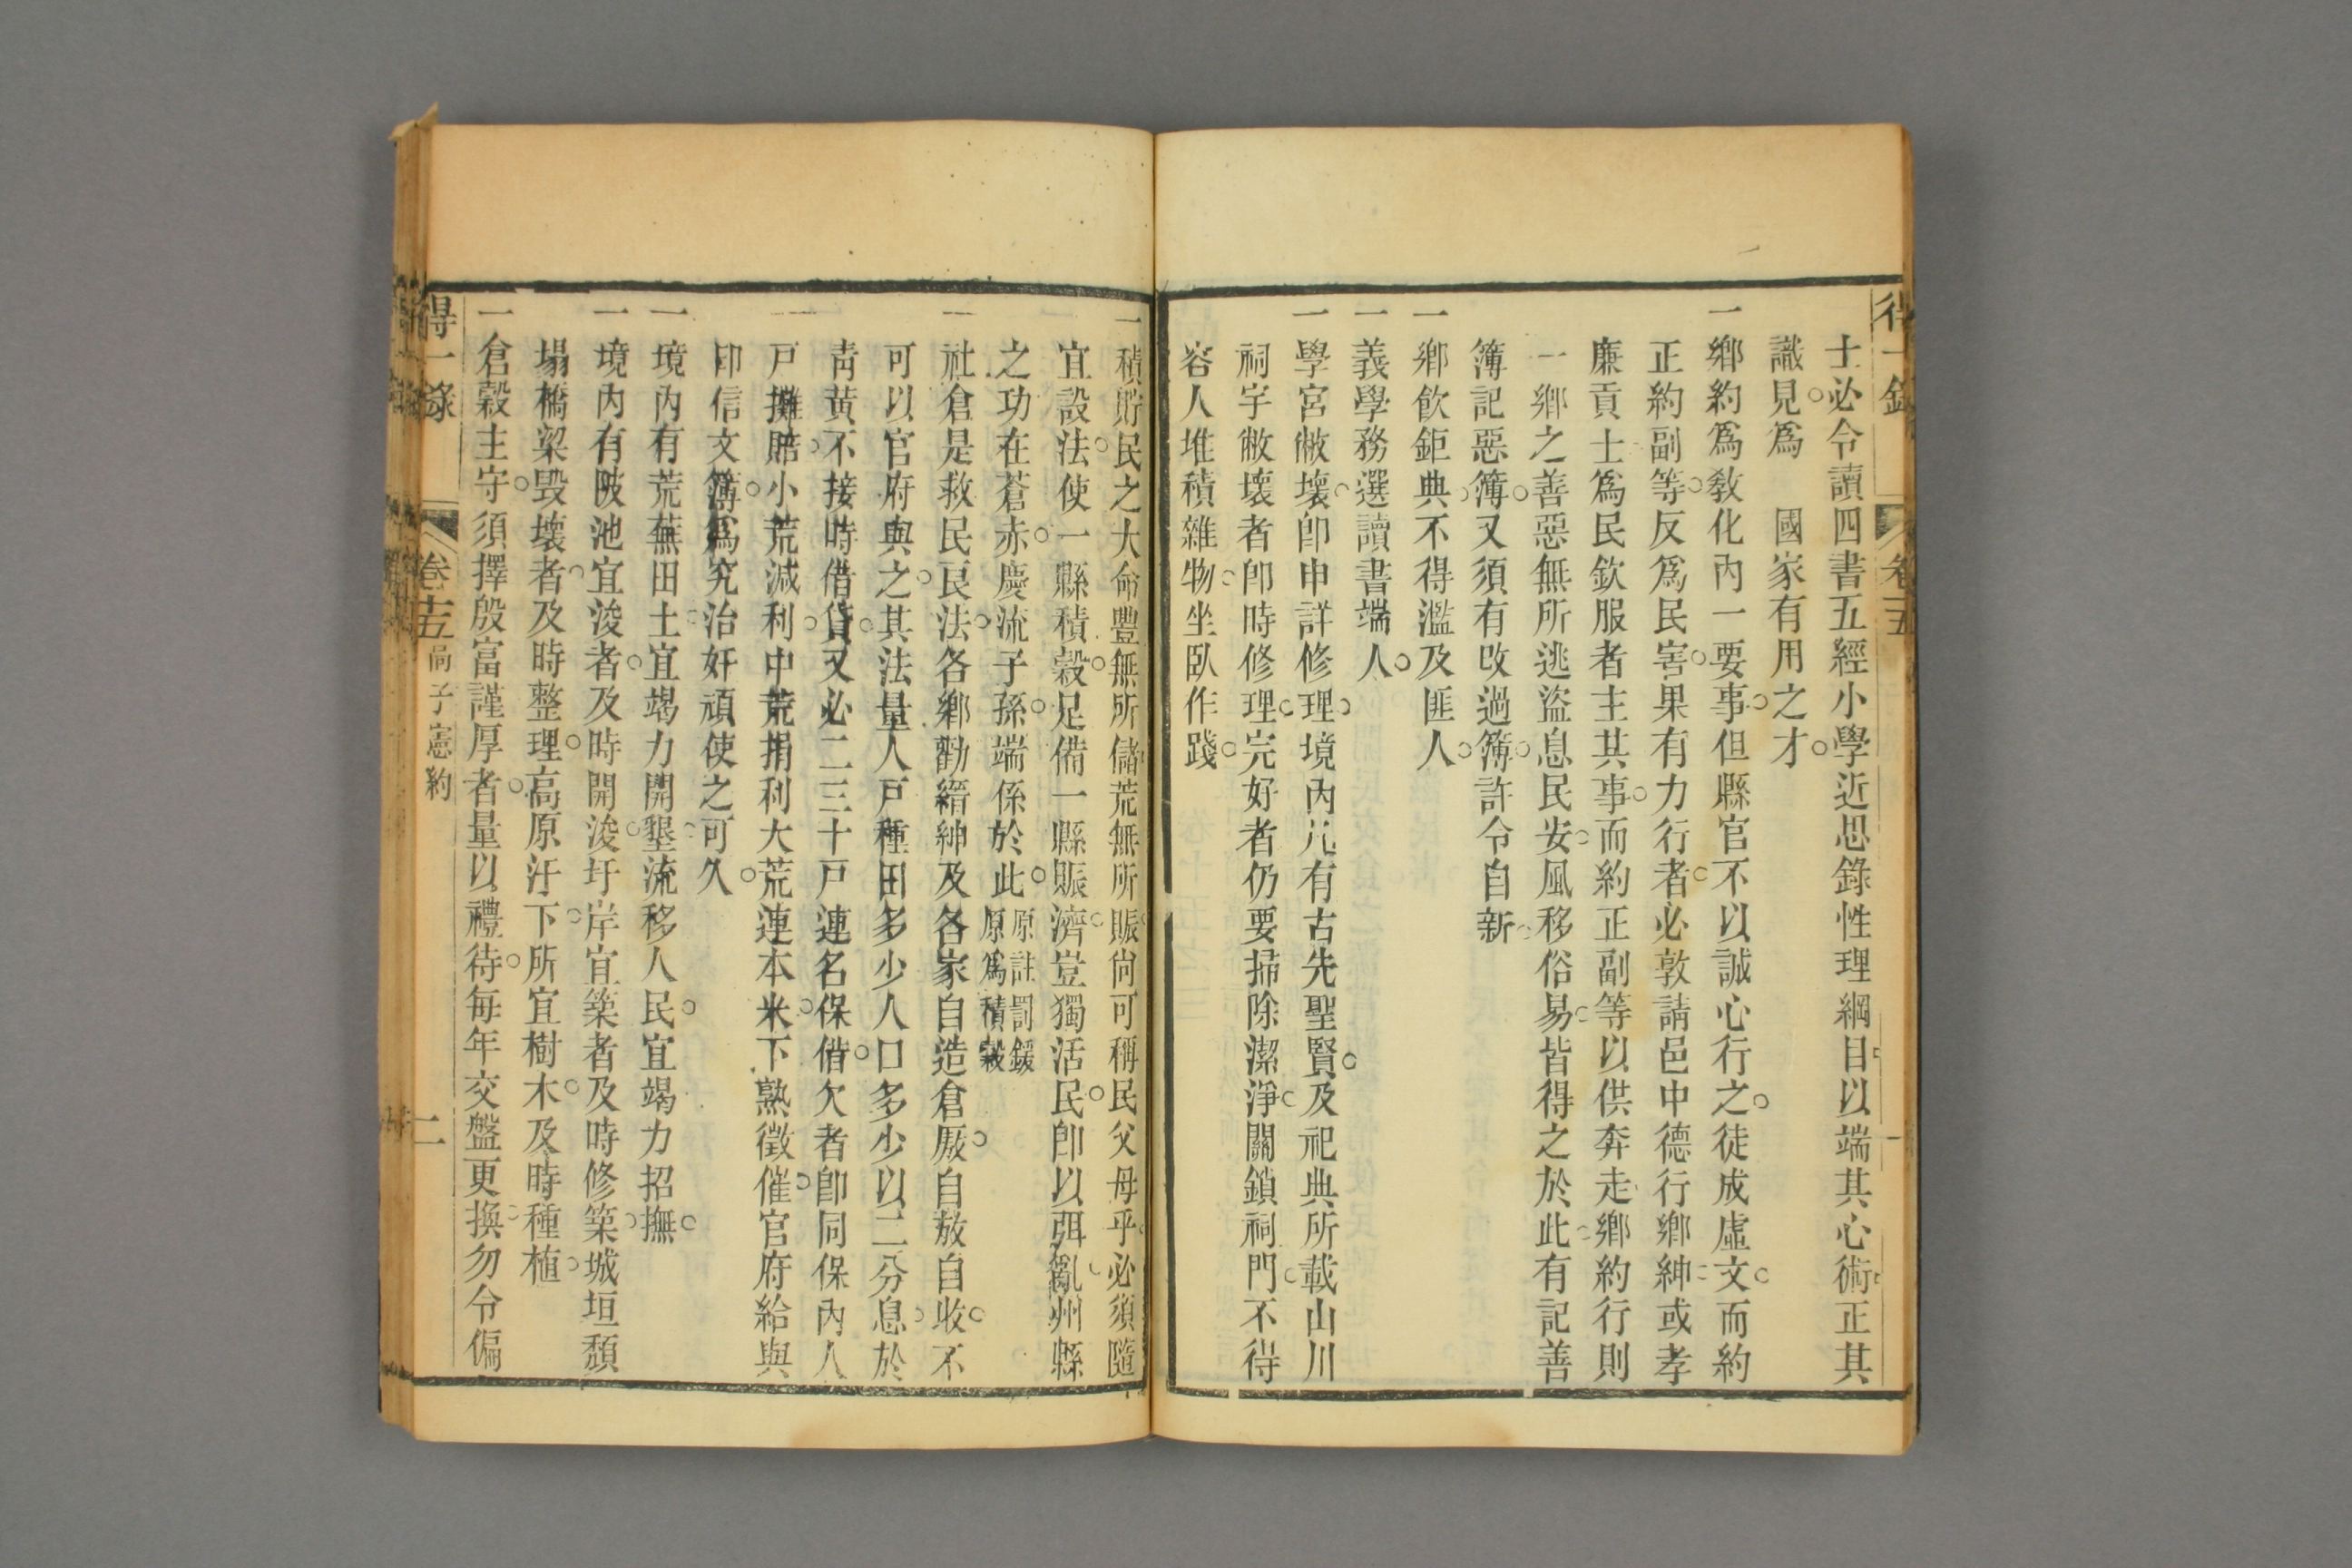 得一錄 卷十五 一
士必令讀四書五經小學近思錄性理綱目以端其心術正其
識見。爲 國家有用之才。
一鄉約爲敎化內一要事。但縣官不以誠心行之。徒成虛文。而約
正約副等。反爲民害。果有力行者。必敦請邑中德行鄉紳。或孝
廉貢士爲民欽服者主其事。而約正副等以供奔走。鄉約行則
一鄉之善惡無所逃盜息民安。風移俗易。皆得之於此。有記善
簿記惡簿。又須有改過簿。許令自新。
一鄉飮鉅典。不得濫及匪人。
一義學務選讀書端人。
一學宮敝壞。卽申詳修理。境內凡有古先聖賢。及祀典所載山川
祠宇敝壞者卽時修理。完好者仍要掃除潔淨。關鎖祠門。不得
容人堆積雜物。坐臥作踐。
一積貯民之大命豐無所儲荒無所賑。尙可稱民父母乎。必須隨
宜設法。使一縣積穀。足備一縣賑濟。豈獨活民。卽以弭亂。州縣
之功在蒼赤。慶流子孫。端係於此。原註罰鍰原爲積穀
一社倉是救民良法。各鄉勸縉紳及各家自造倉厫。自放自收。不
可以官府與之。其法量人戸種田多少人口多少以二分息。於
靑黃不接時借貸。又必二三十戸連名保借。欠者卽同保內人
戸攤賠。小荒減利。中荒捐利大荒連本米。下熟徵催。官府給與
印信文簿。爲究治奸頑使之可久。
一境內有荒蕪田土。宜竭力開墾。流移人民。宜竭力招撫。
一境內有陂池宜浚者。及時開浚。圩岸宜築者及時修築。城垣頹
塌橋梁毀壞者。及時整理。高原汙下。所宜樹木。及時種植。
一倉穀主守。須擇殷富謹厚者。量以禮待。每年交盤更換。勿令偏
得一錄 卷十五 尙子憲約 二